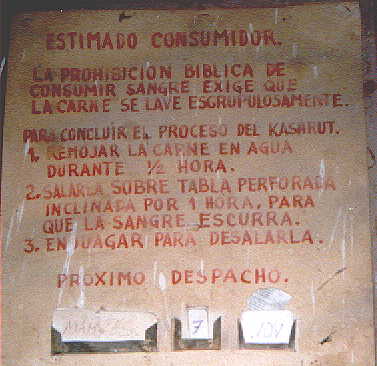 ESTIMADO CONSUMIDOR.
LA PROHIBICION BIBLICA DE
CONSUMIR SANGRE EXIGE QUE
LA CARNE SE LAVE ESCRUPULOSAMENTE.
PARA CONCLUIR EL PROCESO DEL KASHRUT.
1. REMOJAR LA CARNE EN AGUA
DURANTE ½ HORA.
2. SALARLA SOBRE TABLA PERFORADA
INCLINADA POR 1 HORA, PARA
QUE LA SANGRE ESCURRA.
3. ENJUAGAR PARA DESALARLA.
PROXIMO DESPACHO.
7